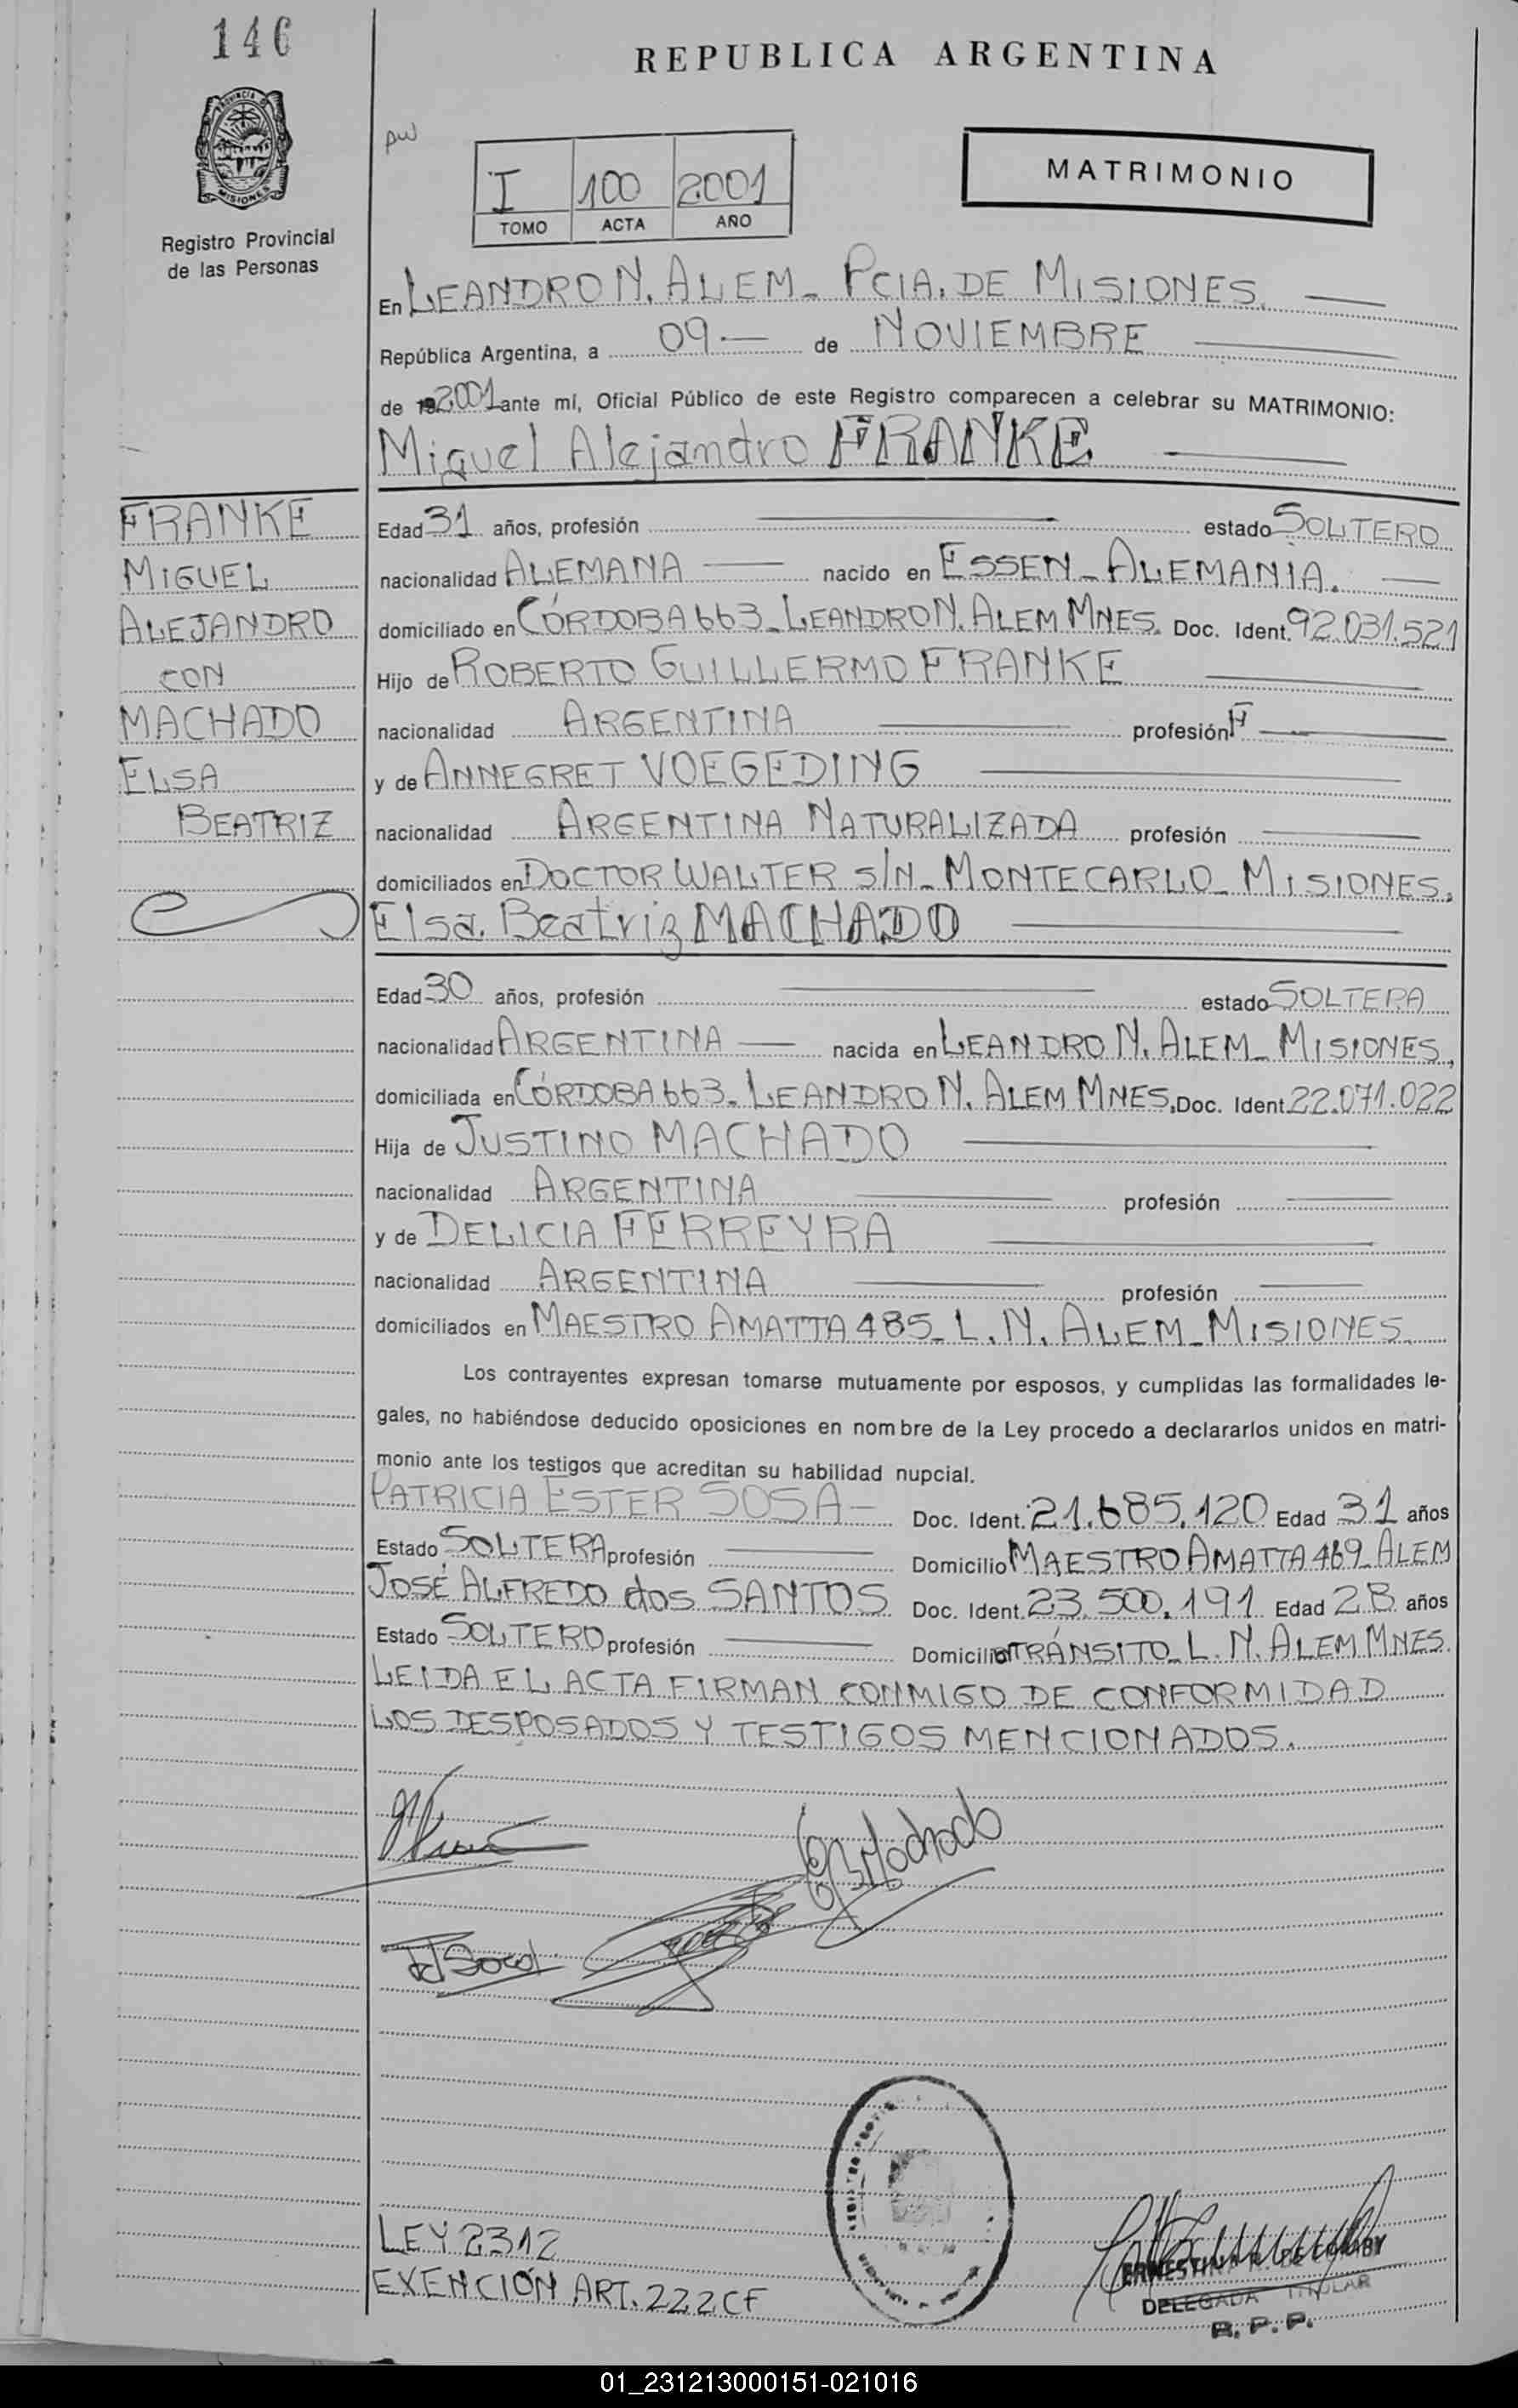 146
REPUBLICA ARGENTINA
PROVINCIA DE
MISIONES
Registro Provincial
de las Personas
I 100 2001
TOMO ACTA AÑO
MATRIMONIO
En LEANDRO N. ALEM - PCIA. DE MISIONES.
República Argentina, a 09 — de NOVIEMBRE
de 2001 ante mí, Oficial Público de este Registro comparecen a celebrar su MATRIMONIO:
Miguel Alejandro FRANKE
FRANKE
MIGUEL
ALEJANDRO
CON
MACHADO
ELSA
BEATRIZ
Edad 31 años, profesión — estado SOLTERO
nacionalidad ALEMANA — nacido en ESSEN - ALEMANIA. —
domiciliado en CÓRDOBA 663 - LEANDRO N. ALEM MNES. Doc. Ident. 92.031.521
Hijo de ROBERTO GUILLERMO FRANKE
nacionalidad ARGENTINA — profesión —
y de ANNEGRET VOEGEDING
nacionalidad ARGENTINA NATURALIZADA profesión —
domiciliados en DOCTOR WALTER S/N - MONTECARLO - MISIONES.
Elsa Beatriz MACHADO
Edad 30 años, profesión — estado SOLTERA
nacionalidad ARGENTINA — nacida en LEANDRO N. ALEM - MISIONES,
domiciliada en CÓRDOBA 663 - LEANDRO N. ALEM MNES. Doc. Ident. 22.071.022
Hija de JUSTINO MACHADO
nacionalidad ARGENTINA — profesión —
y de DELICIA FERREYRA
nacionalidad ARGENTINA — profesión —
domiciliados en MAESTRO AMATTA 485 - L. N. ALEM - MISIONES
Los contrayentes expresan tomarse mutuamente por esposos, y cumplidas las formalidades le-
gales, no habiéndose deducido oposiciones en nombre de la Ley procedo a declararlos unidos en matri-
monio ante los testigos que acreditan su habilidad nupcial.
PATRICIA ESTER SOSA — Doc. Ident. 21.685.120 Edad 31 años
Estado SOLTERA profesión — Domicilio MAESTRO AMATTA 469 - ALEM
JOSÉ ALFREDO dos SANTOS Doc. Ident. 23.500.191 Edad 28 años
Estado SOLTERO profesión — Domicilio TRÁNSITO - L. N. ALEM MNES.
LEIDA EL ACTA FIRMAN CONMIGO DE CONFORMIDAD
LOS DESPOSADOS Y TESTIGOS MENCIONADOS.
EBMachado
LEY 2312
EXENCIÓN ART. 222 CF
DELEGADA TITULAR
R. P. P.
01_231213000151-021016